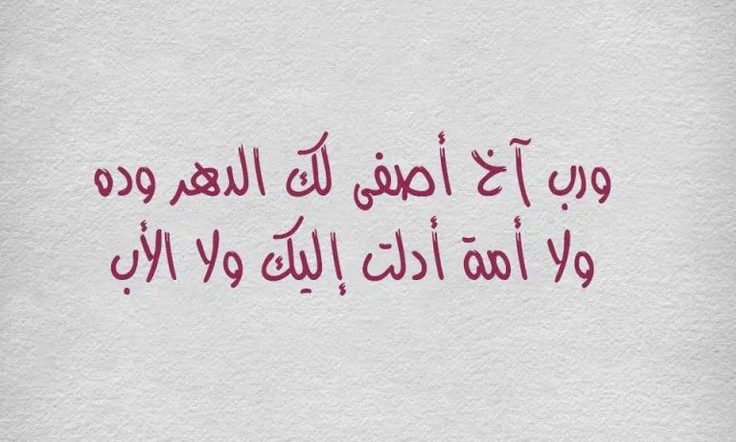 ورب آخ أصفى لك الدهر وده
ولا أمة أدلت إليك ولا الأب